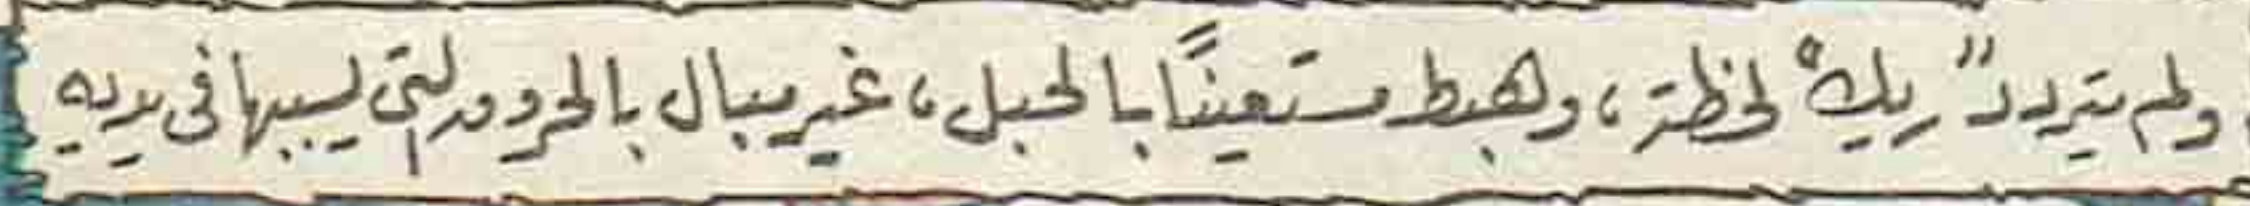 ولم يتردد "ريك" لحظة، وهبط مستعينًا بالحبل، غير مبال بالحروق التى يسببها فى يديه